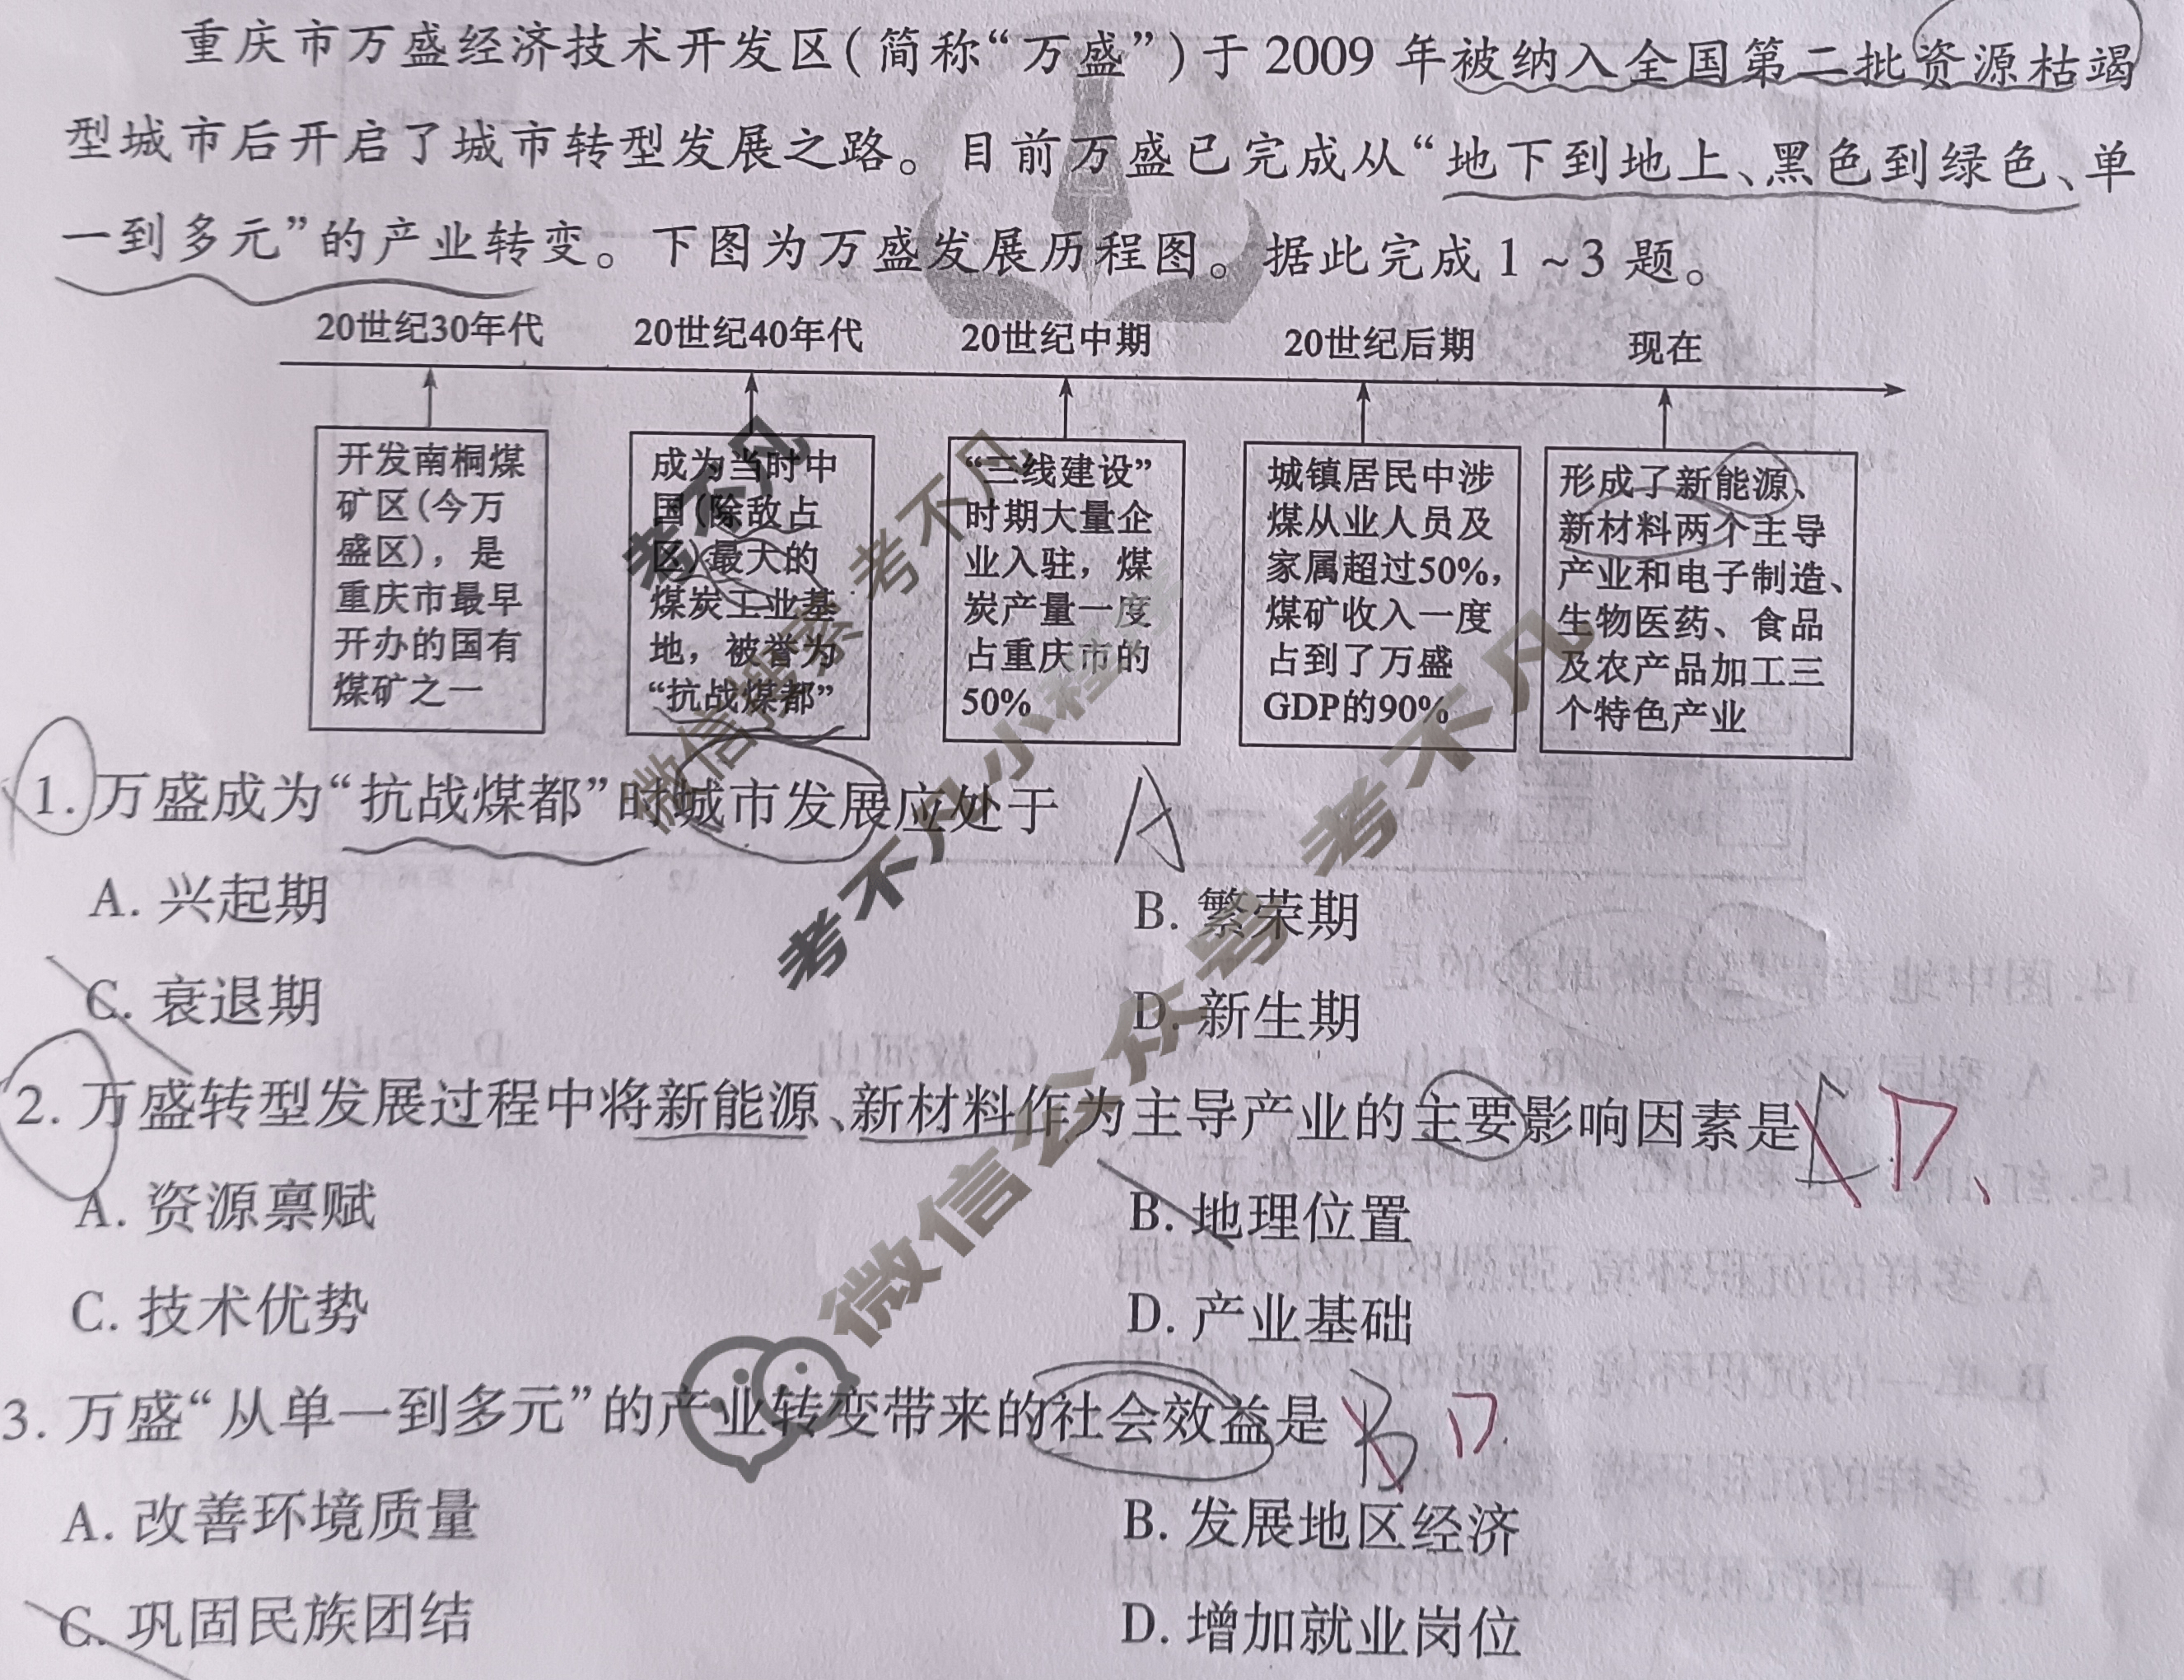 重庆市万盛经济技术开发区(简称“万盛”)于2009年被纳入全国第二批资源枯竭
型城市后开启了城市转型发展之路。目前万盛已完成从“地下到地上、黑色到绿色、单
一到多元”的产业转变。下图为万盛发展历程图。据此完成1~3题。
20世纪30年代 20世纪40年代 20世纪中期 20世纪后期 现在
开发南桐煤
矿区(今万
盛区),是
重庆市最早
开办的国有
煤矿之一
成为当时中
国(除敌占
区)最大的
煤炭工业基
地,被誉为
“抗战煤都”
“三线建设”
时期大量企
业入驻,煤
炭产量一度
占重庆市的
50%
城镇居民中涉
煤从业人员及
家属超过50%,
煤矿收入一度
占到了万盛
GDP的90%
形成了新能源、
新材料两个主导
产业和电子制造、
生物医药、食品
及农产品加工三
个特色产业
1. 万盛成为“抗战煤都”时城市发展应处于 A
A. 兴起期 B. 繁荣期
C. 衰退期 D. 新生期
2. 万盛转型发展过程中将新能源、新材料作为主导产业的主要影响因素是 D
A. 资源禀赋 B. 地理位置
C. 技术优势 D. 产业基础
3. 万盛“从单一到多元”的产业转变带来的社会效益是 B D
A. 改善环境质量 B. 发展地区经济
C. 巩固民族团结 D. 增加就业岗位
考不凡
微信搜索 考不凡
考不凡小程序
微信公众号 考不凡